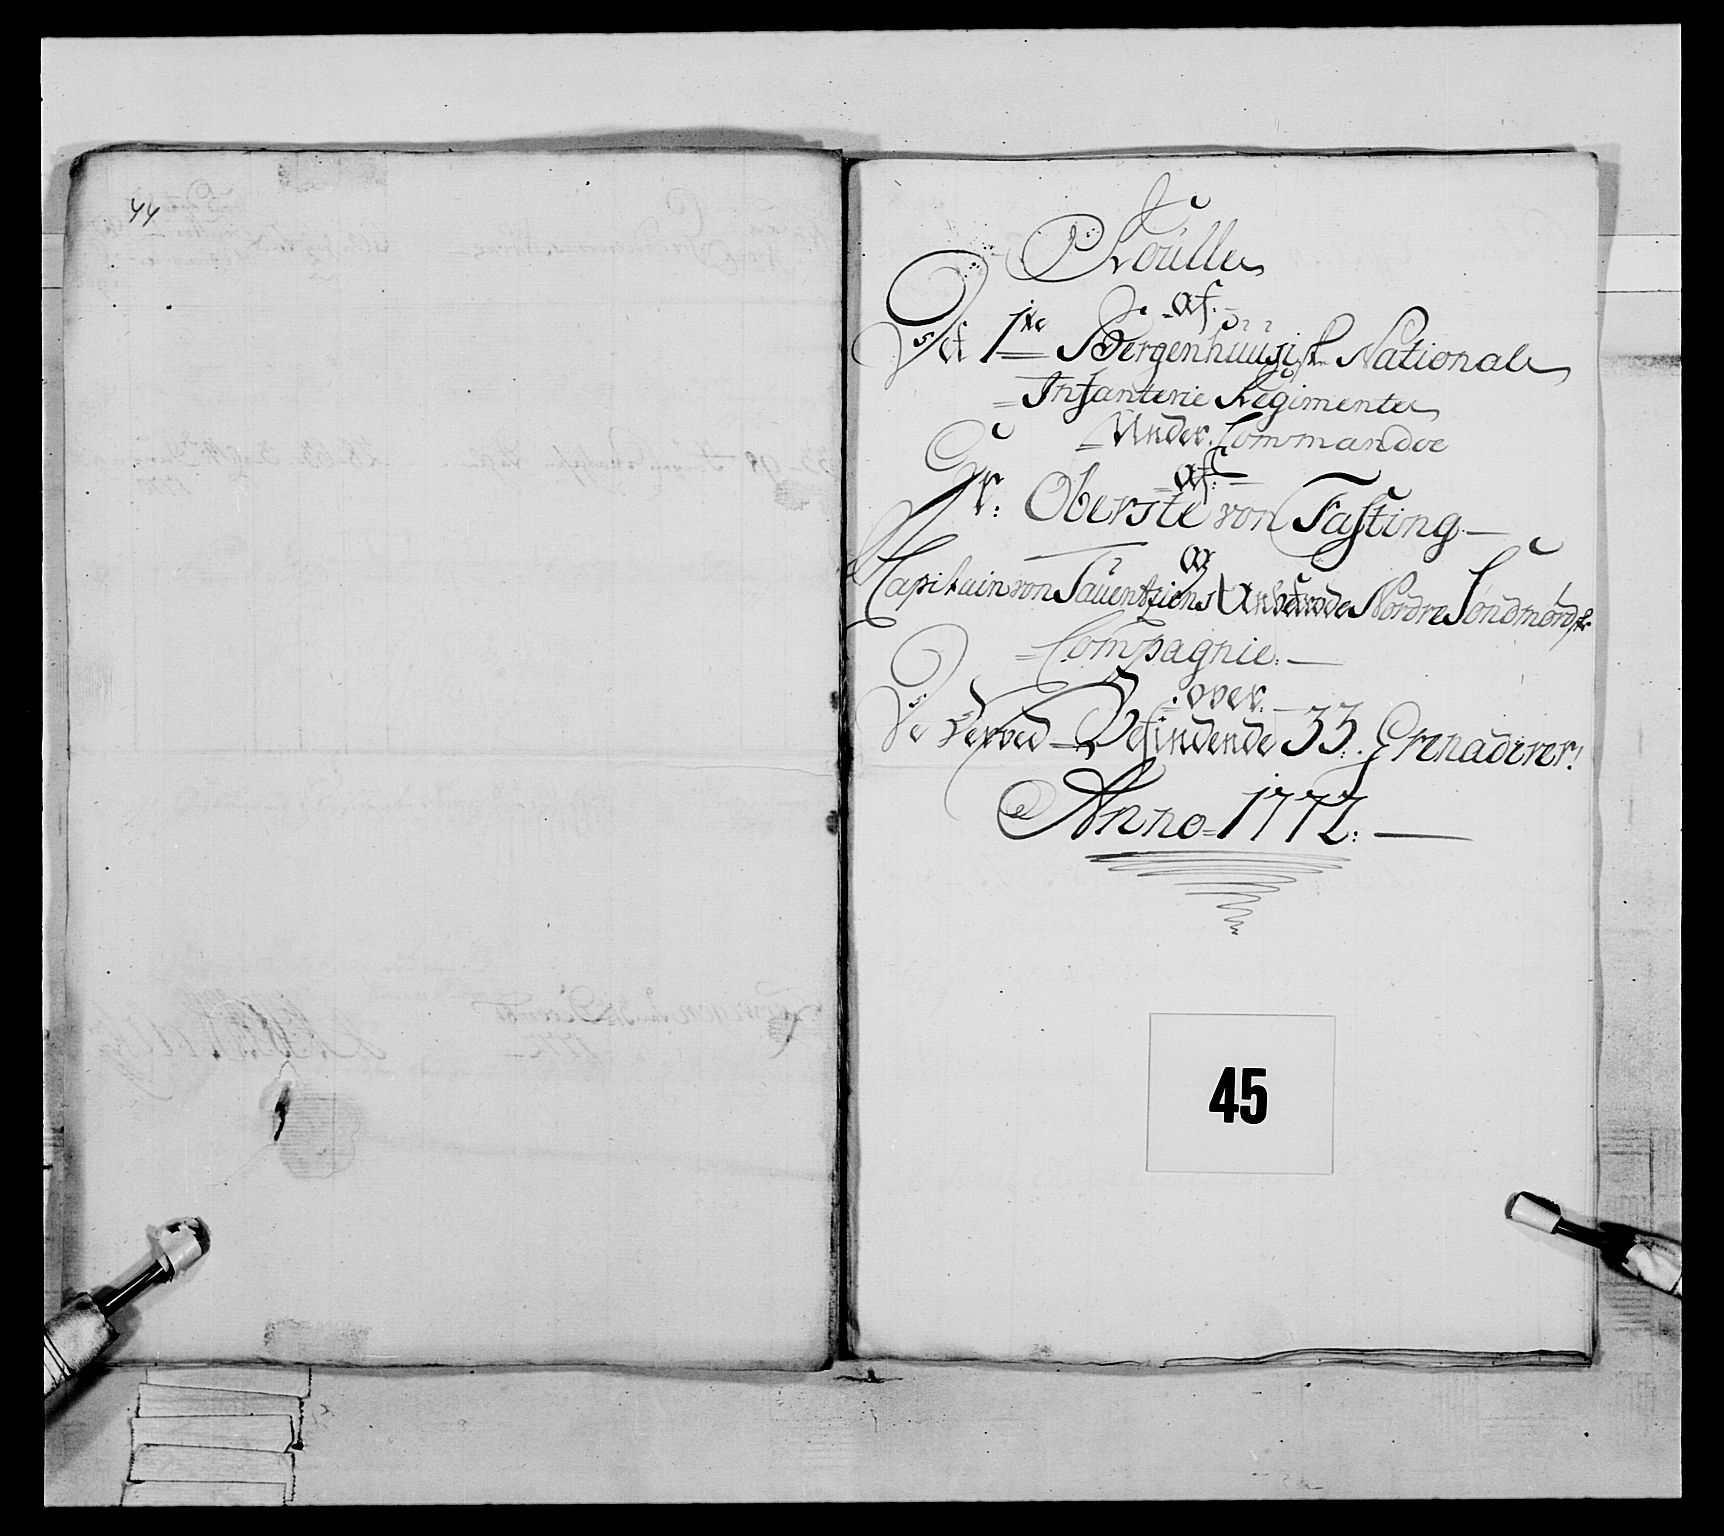 44
Roulle
af.
Det 1te Bergenhuusiske Nationale
Infanterie Regimente
Under Commandoe
af
Hr: Oberste von Fasting
og
Capitain von Tauentziens Anbetroede Nordre Söndmördske
Compagnie.
over.
De derved Befindende 33. Grenaderer!
Anno 1772.
45